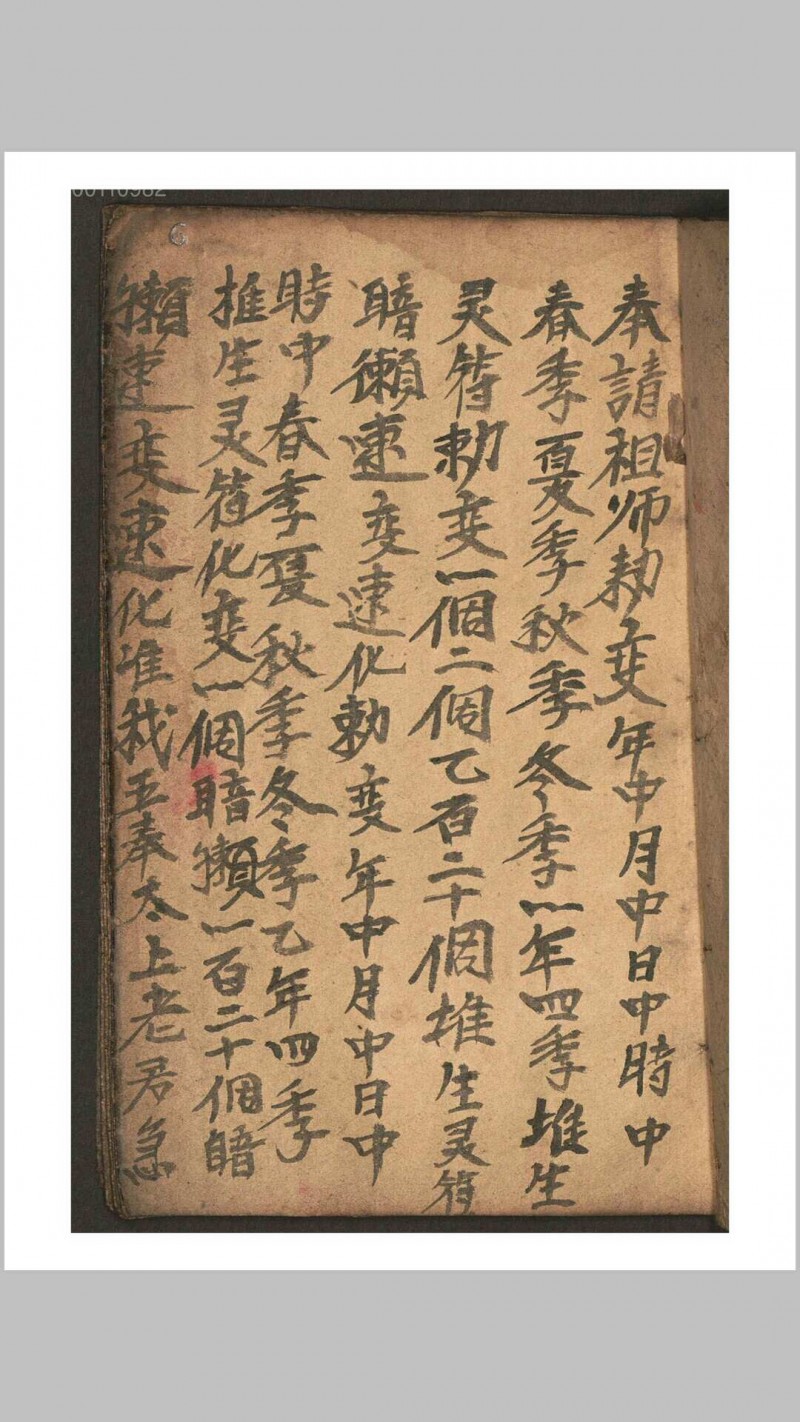 奉請祖师勅变年中月中日中時中
春季夏季秋季冬季一年四季堆生
灵符勅变一個二個乙百二十個堆生灵符
暗懶速变速化勅变年中月中日中
時中春季夏秋季冬季乙年四季
推生灵符化变一個暗懶一百二十個暗
懶速变速化准我五奉太上老君急